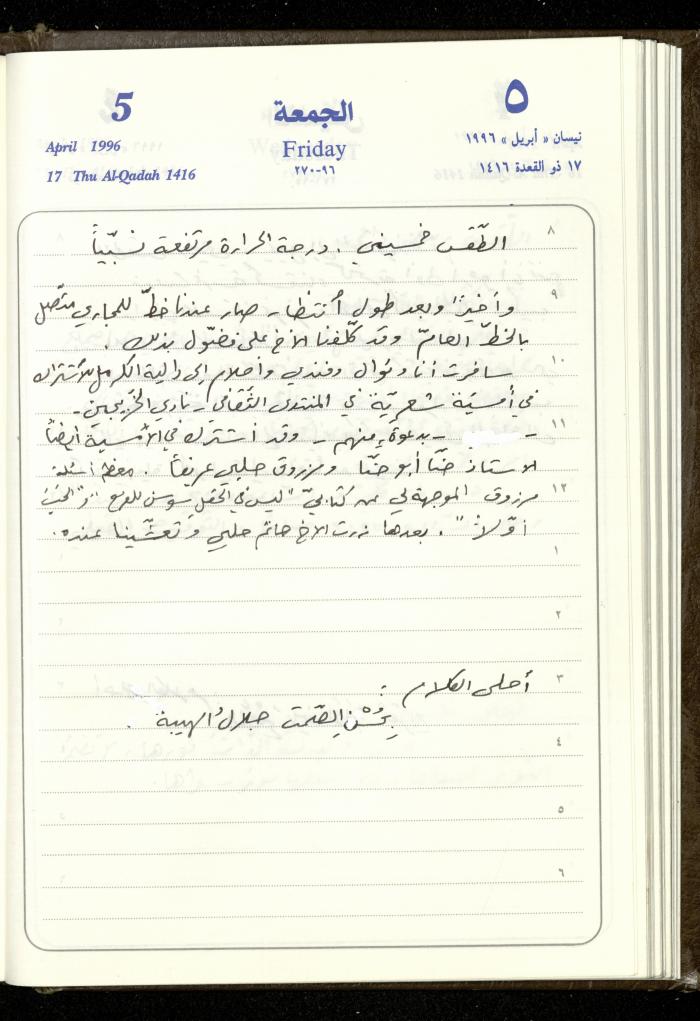 5 الجمعة ٥
April 1996 Friday نيسان « أبريل » ١٩٩٦
17 Thu Al-Qadah 1416 ٩٦-٢٧٠ ١٧ ذو القعدة ١٤١٦
٨ الطّقس خمسيني . درجة الحرارة مرتفعة نسبيّاً
٩ وأخيراً وبعد طول انتظار صار عندنا خطّ للمجاري متّصل
بالخطّ العامّ وقد كلّفنا الأخ علي فضّول بذلك .
١٠ سافرت أنا ونوال وفندي وأحلام إلى دالية الكرمل للاشتراك
في أمسيّة شعريّة في المنتدى الثّقافي - نادي الخرّيجين -
١١ - بدعوة منهم - وقد اشترك في الأمسية أيضاً
الاستاذ حنّا أبو حنّا ومرزوق حلبي عريفاً . معظم أسئلة
١٢ مرزوق الموجهة لي عن كتابيّ "ليس في الحقل سوسن للفرح" و"الحبّ
أوّلاً" . بعدها زرت الاخ حاتم حلبي وتعشّينا عنده .
١
٢
٣ أحلى الكلام :
بحُسْنِ الصّمت جلالُ الهيبة .
٤
٥
٦